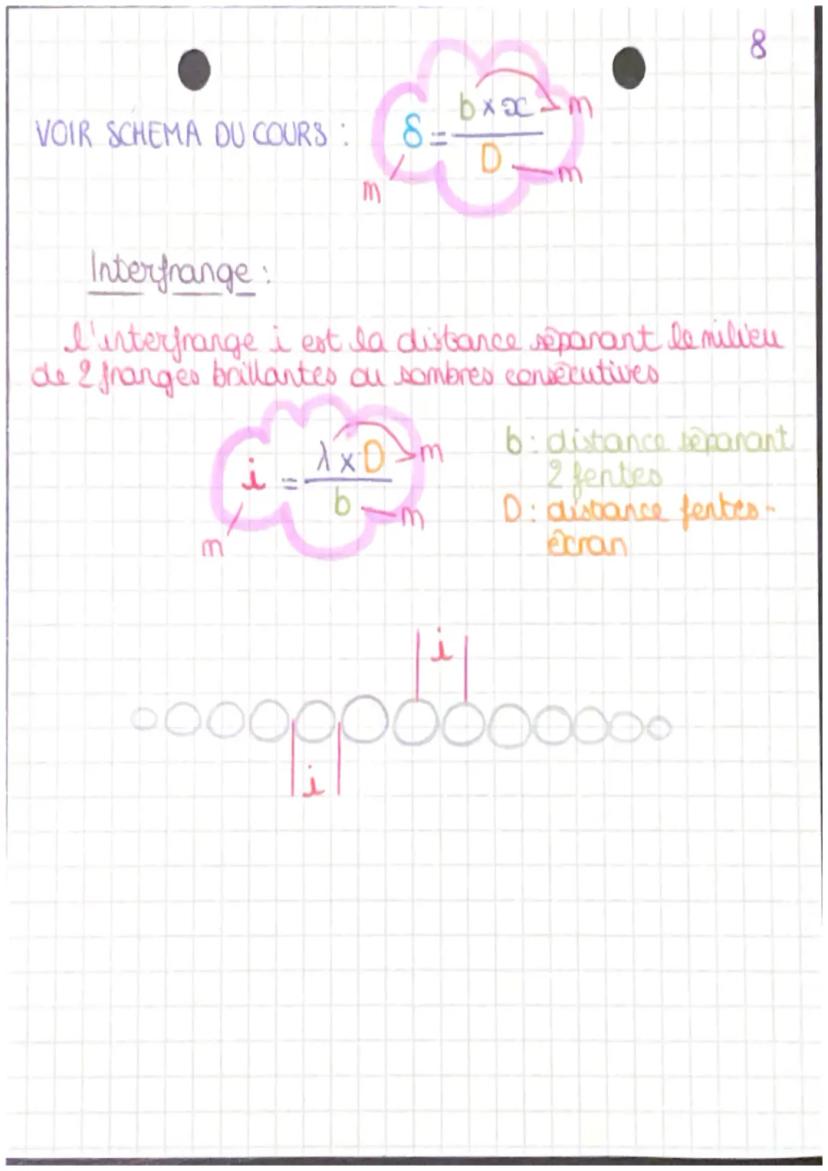 8
VOIR SCHEMA DU COURS : δ = b × x / D
m
m
m
Interfrange :
l'interfrange i est la distance séparant le milieu
de 2 franges brillantes ou sombres consécutives
i = λ × D / b
m
m
m
b : distance séparant
2 fentes
D : distance fentes-
écran
i
i